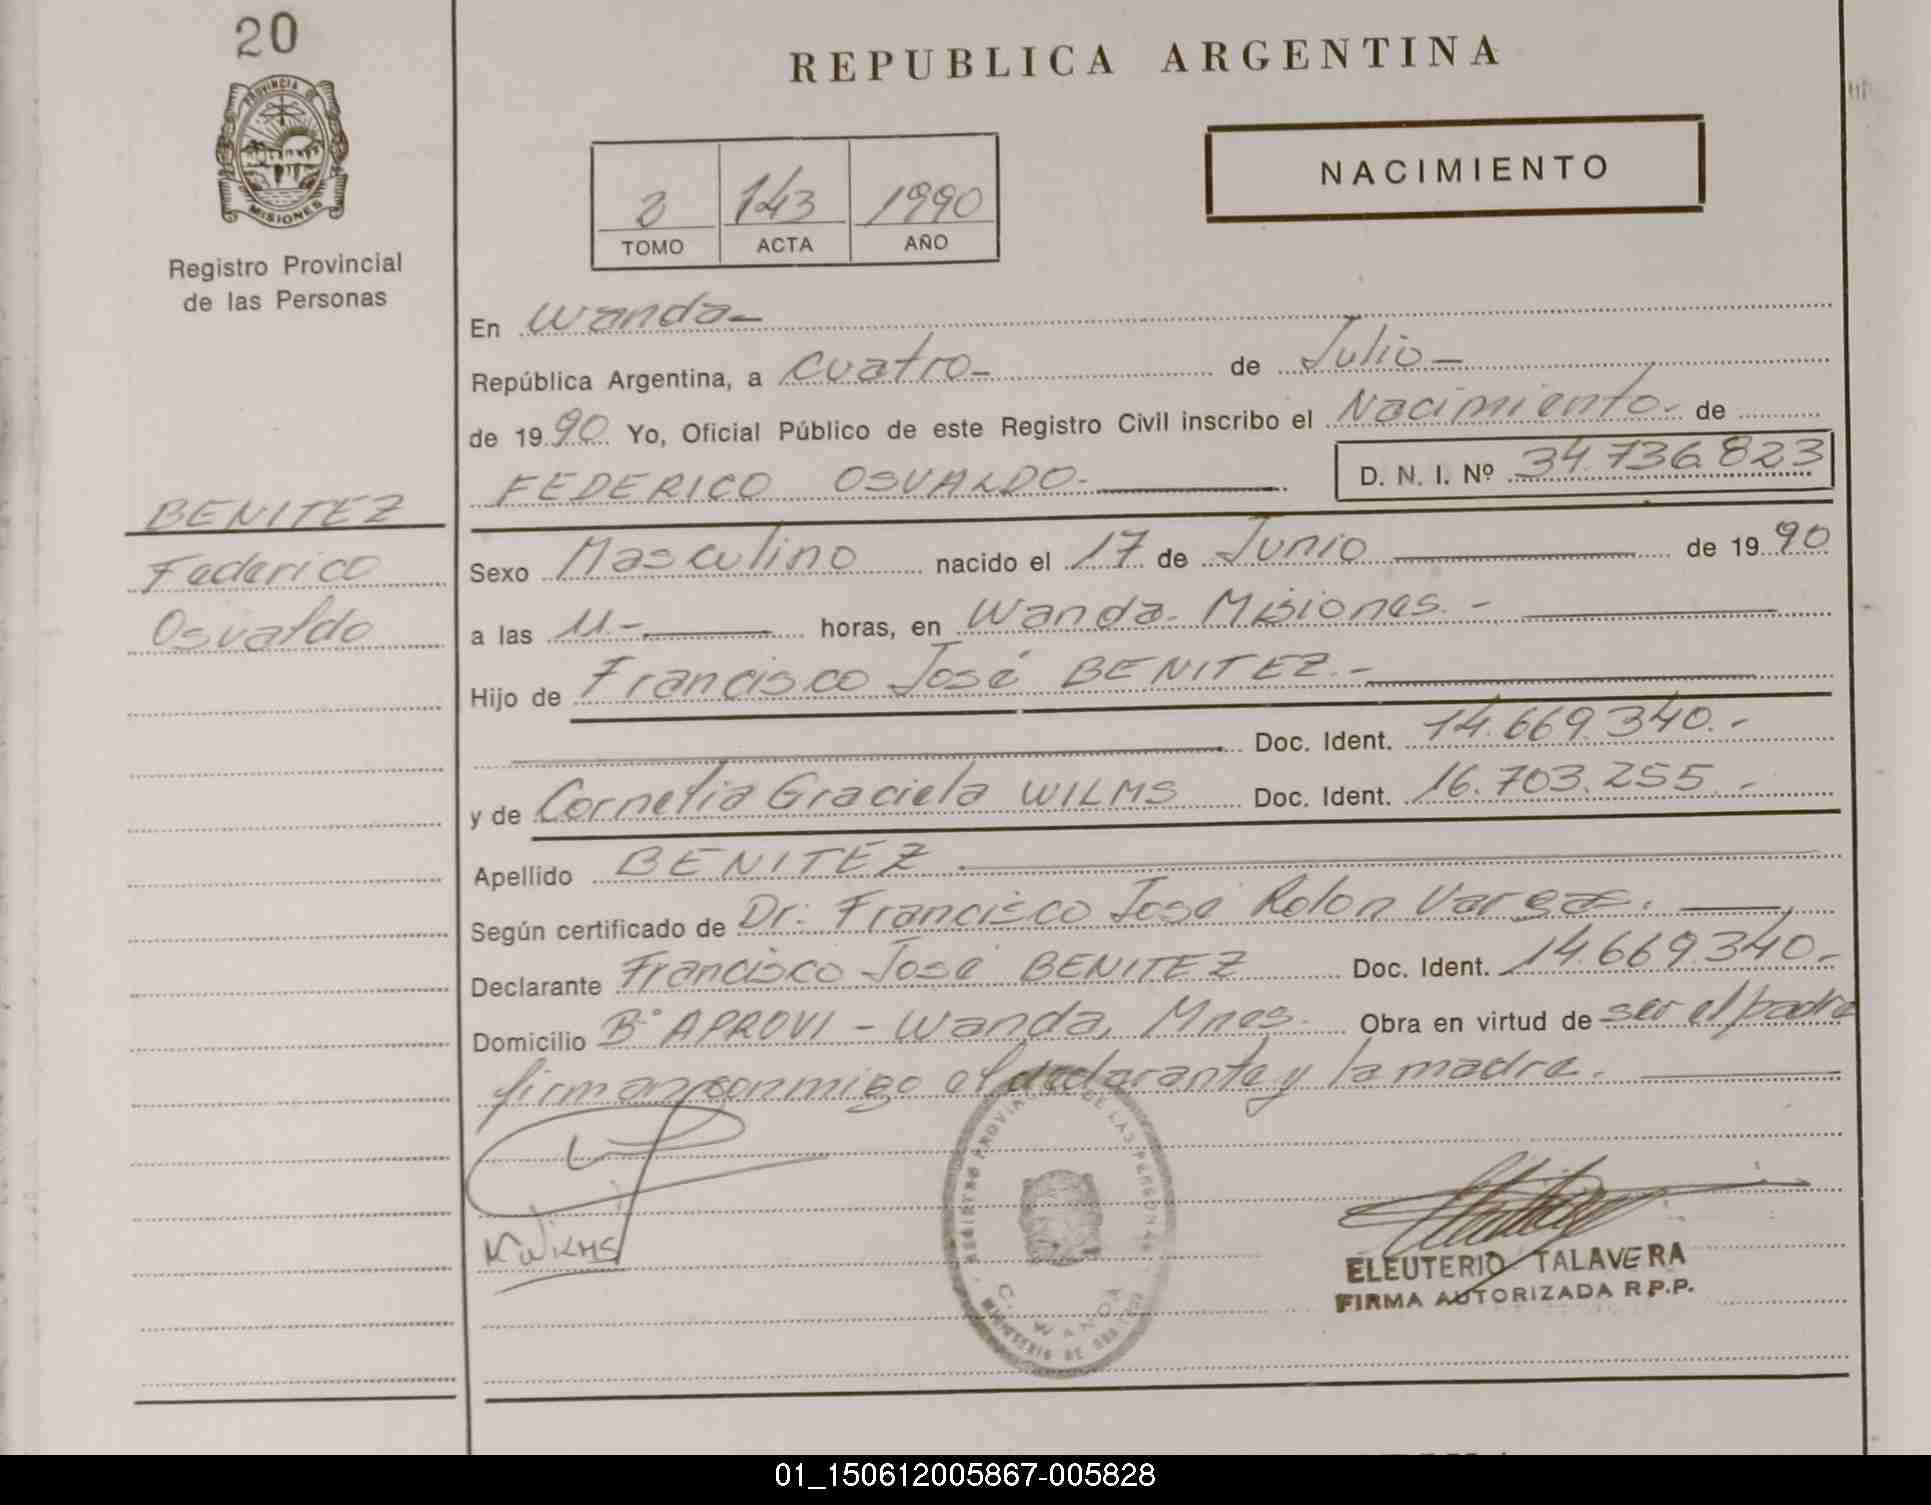 20
REPUBLICA ARGENTINA
PROVINCIA DE
MISIONES
NACIMIENTO
2 143 1990
TOMO ACTA AÑO
Registro Provincial
de las Personas
En Wanda-
República Argentina, a cuatro- de Julio-
de 1990 Yo, Oficial Público de este Registro Civil inscribo el Nacimiento- de
FEDERICO OSVALDO- D. N. I. Nº 34.736.823
BENITEZ
Federico
Osvaldo
Sexo Masculino nacido el 17 de Junio de 1990
a las 11- horas, en Wanda- Misiones.-
Hijo de Francisco José BENITEZ.-
Doc. Ident. 14.669.340.-
y de Cornelia Graciela WILMS Doc. Ident. 16.703.255.-
Apellido BENITEZ
Según certificado de Dr: Francisco José Rolon Varga.
Declarante Francisco José BENITEZ Doc. Ident. 14.669.340-
Domicilio Bº APROVI - Wanda, Mnes. Obra en virtud de ser el padre
firman conmigo el declarante y la madre.
REGISTRO PROVINCIAL DE LAS PERSONAS
WANDA
MINISTERIO DE
ELEUTERIO TALAVERA
FIRMA AUTORIZADA R.P.P.
01_150612005867-005828